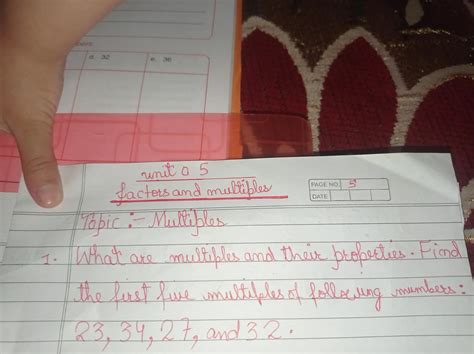 d. 32
e. 36
unit 05
factors and multiples
PAGE NO. 5
DATE
Topic :- Multiples
1. What are multiples and their properties. Find
the first five multiples of following numbers:
23, 34, 27, and 32.